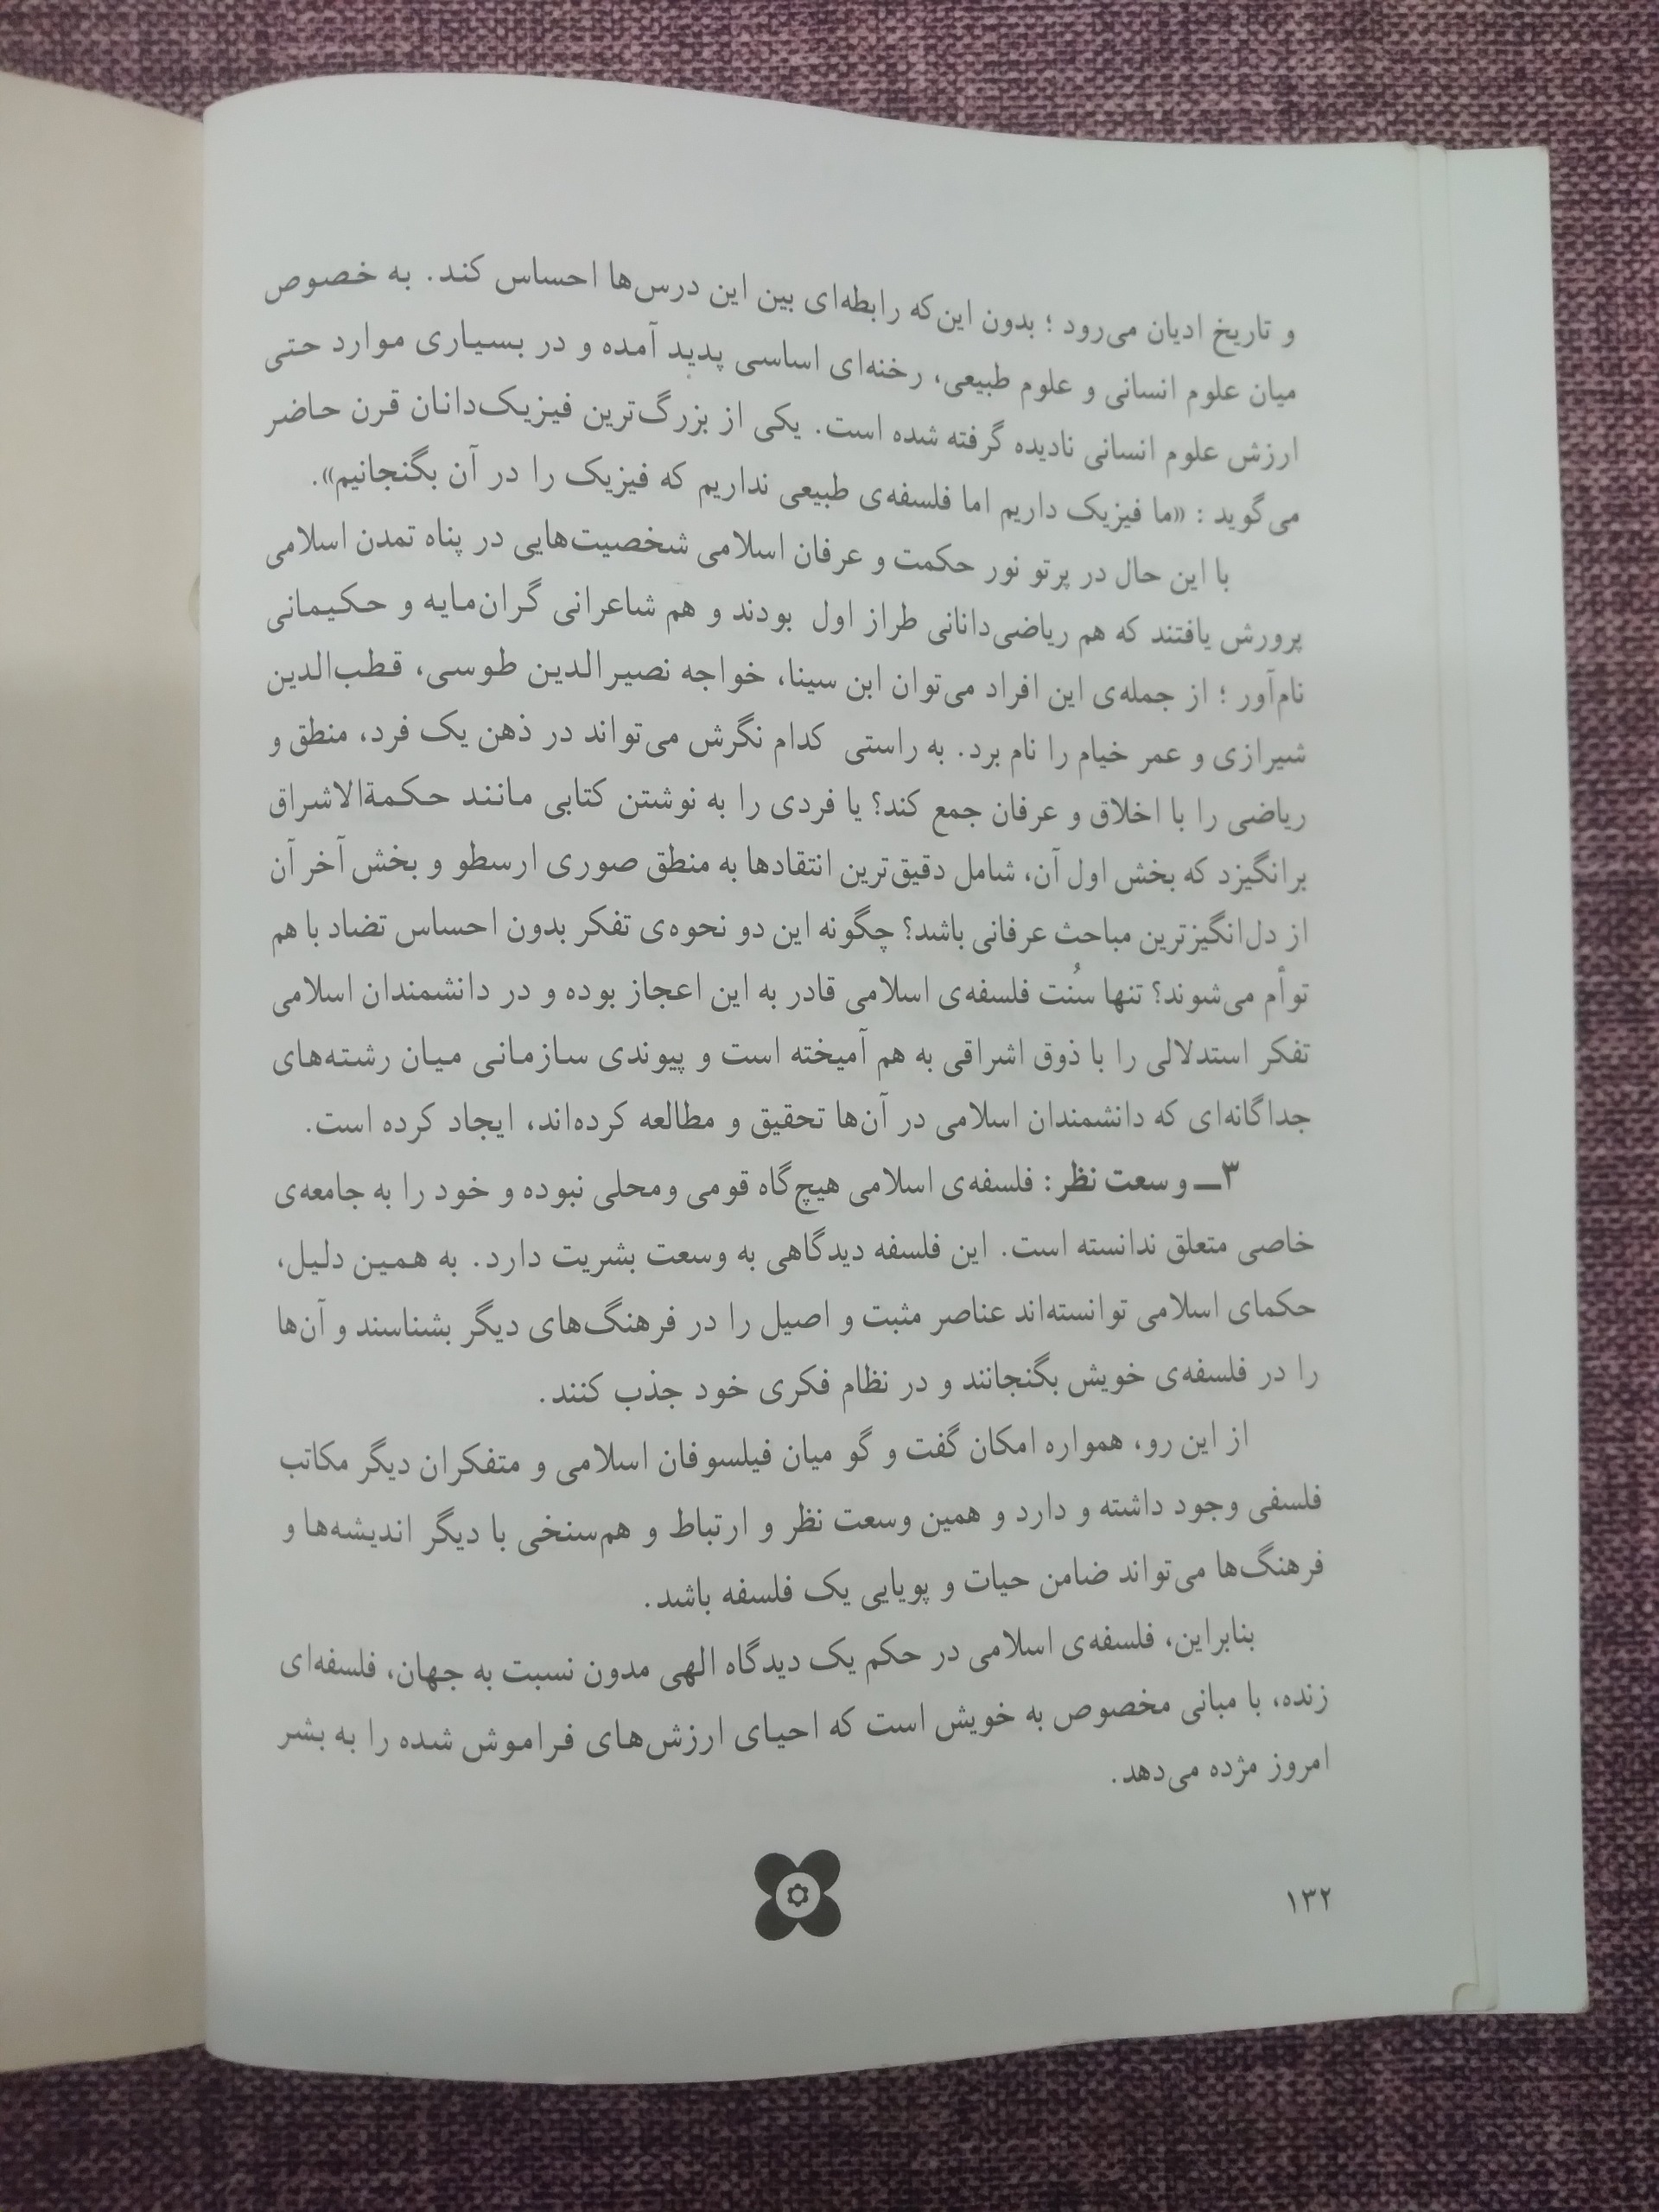 و تاریخ ادیان می‌رود ؛ بدون این‌که رابطه‌ای بین این درس‌ها احساس کند. به خصوص
میان علوم انسانی و علوم طبیعی، رخنه‌ای اساسی پدید آمده و در بسیاری موارد حتی
ارزش علوم انسانی نادیده گرفته شده است. یکی از بزرگ‌ترین فیزیک‌دانان قرن حاضر
می‌گوید : «ما فیزیک داریم اما فلسفه‌ی طبیعی نداریم که فیزیک را در آن بگنجانیم».
با این حال در پرتو نور حکمت و عرفان اسلامی شخصیت‌هایی در پناه تمدن اسلامی
پرورش یافتند که هم ریاضی‌دانانی طراز اول بودند و هم شاعرانی گران‌مایه و حکیمانی
نام‌آور ؛ از جمله‌ی این افراد می‌توان ابن سینا، خواجه نصیرالدین طوسی، قطب‌الدین
شیرازی و عمر خیام را نام برد. به راستی کدام نگرش می‌تواند در ذهن یک فرد، منطق و
ریاضی را با اخلاق و عرفان جمع کند؟ یا فردی را به نوشتن کتابی مانند حکمةالاشراق
برانگیزد که بخش اول آن، شامل دقیق‌ترین انتقادها به منطق صوری ارسطو و بخش آخر آن
از دل‌انگیزترین مباحث عرفانی باشد؟ چگونه این دو نحوه‌ی تفکر بدون احساس تضاد با هم
توأم می‌شوند؟ تنها سُنت فلسفه‌ی اسلامی قادر به این اعجاز بوده و در دانشمندان اسلامی
تفکر استدلالی را با ذوق اشراقی به هم آمیخته است و پیوندی سازمانی میان رشته‌های
جداگانه‌ای که دانشمندان اسلامی در آن‌ها تحقیق و مطالعه کرده‌اند، ایجاد کرده است.
۳ــ وسعت نظر: فلسفه‌ی اسلامی هیچ‌گاه قومی ومحلی نبوده و خود را به جامعه‌ی
خاصی متعلق ندانسته است. این فلسفه دیدگاهی به وسعت بشریت دارد. به همین دلیل،
حکمای اسلامی توانسته‌اند عناصر مثبت و اصیل را در فرهنگ‌های دیگر بشناسند و آن‌ها
را در فلسفه‌ی خویش بگنجانند و در نظام فکری خود جذب کنند.
از این رو، همواره امکان گفت و گو میان فیلسوفان اسلامی و متفکران دیگر مکاتب
فلسفی وجود داشته و دارد و همین وسعت نظر و ارتباط و هم‌سنخی با دیگر اندیشه‌ها و
فرهنگ‌ها می‌تواند ضامن حیات و پویایی یک فلسفه باشد.
بنابراین، فلسفه‌ی اسلامی در حکم یک دیدگاه الهی مدون نسبت به جهان، فلسفه‌ای
زنده، با مبانی مخصوص به خویش است که احیای ارزش‌های فراموش شده را به بشر
امروز مژده می‌دهد.
۱۳۲